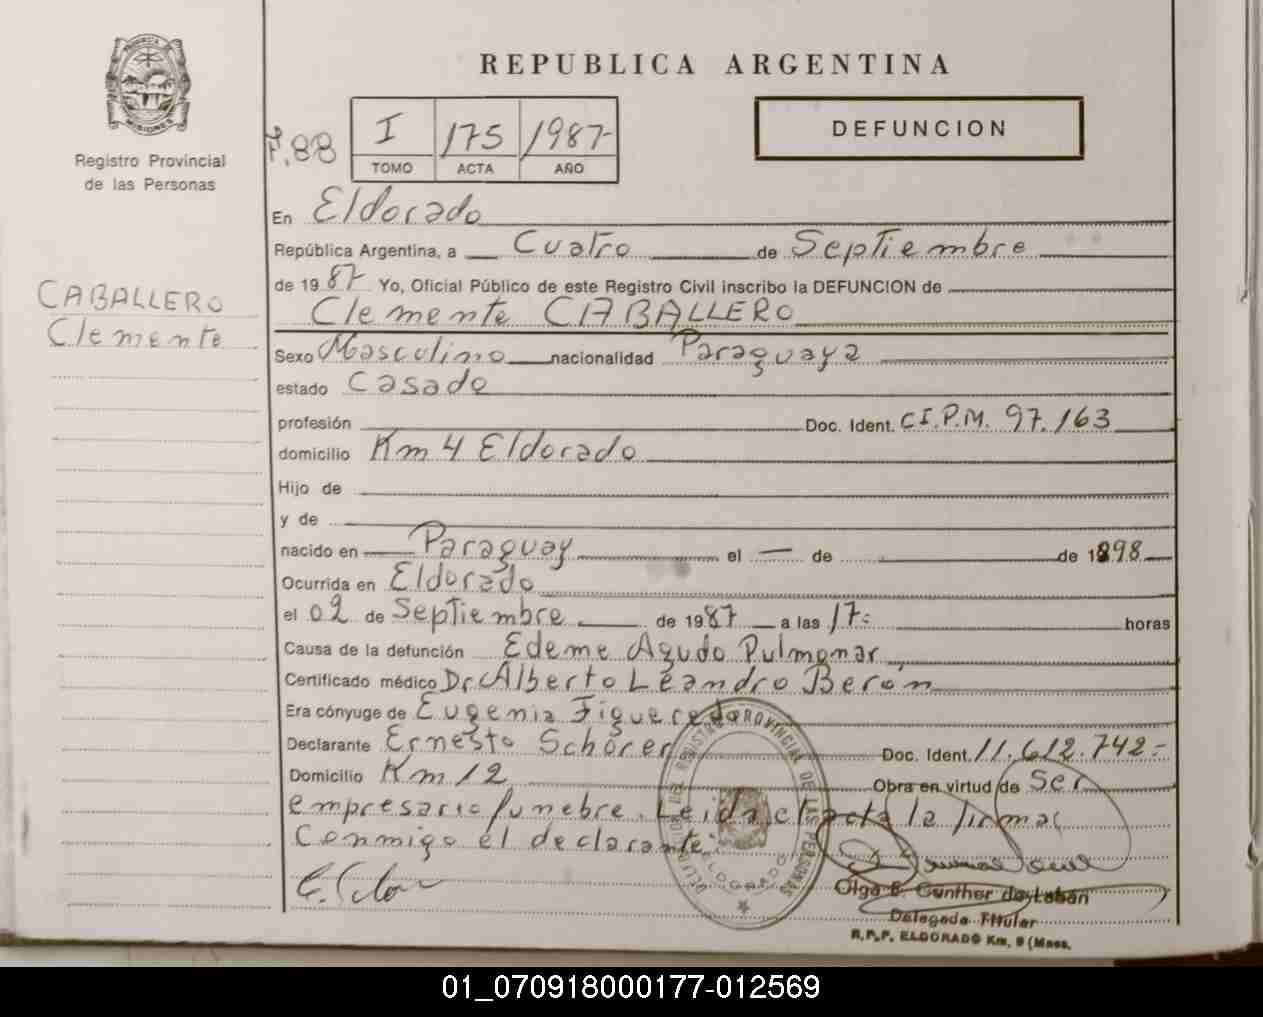 REPUBLICA ARGENTINA
MISIONES
Registro Provincial
de las Personas
F.88
I 175 1987-
TOMO ACTA AÑO
DEFUNCION
CABALLERO
Clemente
En Eldorado
República Argentina, a Cuatro de Septiembre
de 1987 Yo, Oficial Público de este Registro Civil inscribo la DEFUNCION de
Clemente CABALLERO
Sexo Masculino nacionalidad Paraguaya
estado Casado
profesión Doc. Ident. C.I.P.M. 97.163
domicilio Km 4 Eldorado
Hijo de
y de
nacido en Paraguay el — de de 1898
Ocurrida en Eldorado
el 02 de Septiembre de 1987 a las 17:- horas
Causa de la defunción Edeme Agudo Pulmonar
Certificado médico Dr. Alberto Leandro Berón
Era cónyuge de Eugenia Figueredo
Declarante Ernesto Schörer Doc. Ident. 11.612.742=
Domicilio Km 12 Obra en virtud de Ser
empresario funebre. Leida el acta la firma
conmigo el declarante
DELEGACION DEL REGISTRO PROVINCIAL DE LAS PERSONAS
ELDORADO
Olga B. Gunther de Labán
Delegada Titular
R.P.P. ELDORADO Km. 9 (Mnes.
01_070918000177-012569